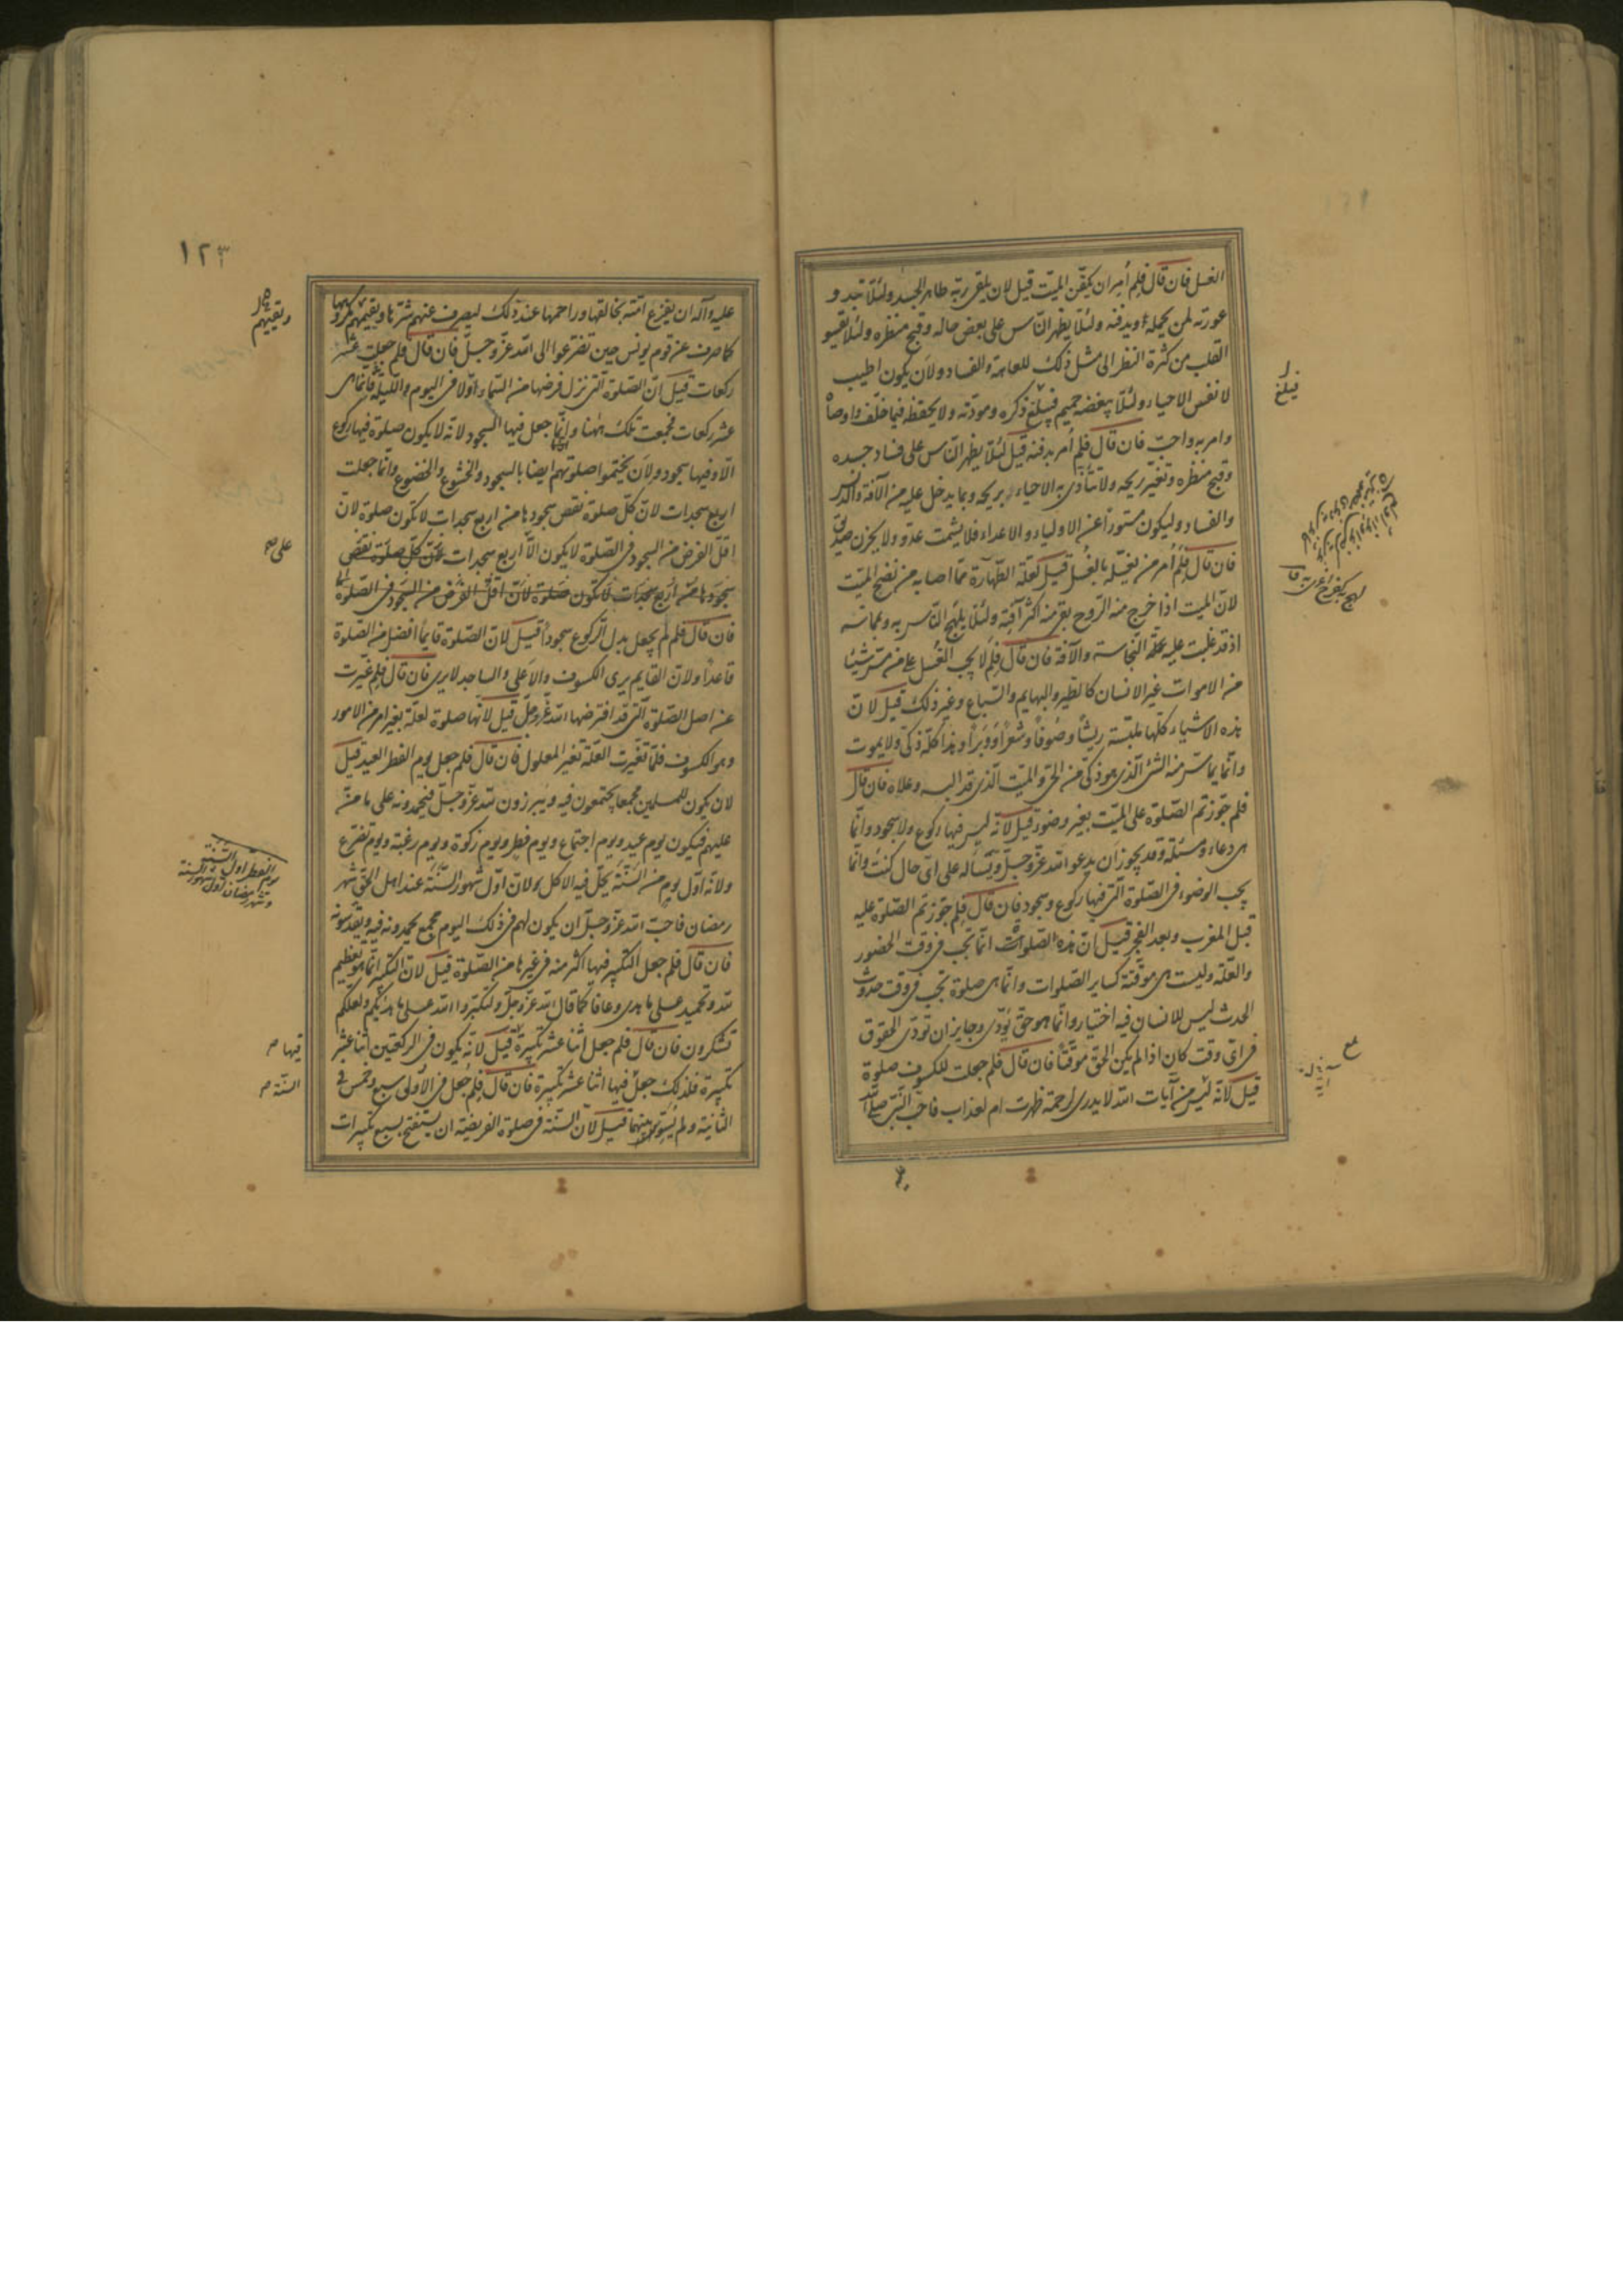 الغسل فان قال فلم أمر ان يكفّن الميّت قيل لان يلقى ربّه طاهر الجسد ولئلّا تبدو
عورته لمن يحمله او يدفنه ولئلّا يظهر النّاس على بعض حاله وقبح منظره ولئلّا يقسو
القلب من كثرة النظر الى مثل ذلك للعاهة والفساد ولان يكون اطيب
لانفس الاحياء ولئلّا يبغضه حميم فيلغى ذكره ومودّته ولا يحفظه فيما خلّف واوصاه
وامر به واحبّ فان قال فلم أمر بدفنه قيل لئلّا يظهر النّاس على فساد جسده
وقبح منظره وتغيّر ريحه ولا تتأذّى به الاحياء بريحه وبما يدخل عليه من الآفة والدنس
والفساد وليكون مستوراً عن الاولياء والاعداء فلا يشمت عدوّ ولا يحزن صديق
فان قال فلم أمر من يغسّله بالغسل قيل لعلّة الطّهارة ممّا اصابه من نضح الميّت
لانّ الميّت اذا خرج منه الرّوح بقى منه اكثر آفته ولئلّا يلهج النّاس به وبمماسّته
اذ قد غلبت عليه علّة النّجاسة والآفة فان قال فلم لا يجب الغسل على من مسّ شيئا
من الاموات غير الانسان كالطّير والبهايم والسّباع وغير ذلك قيل لانّ
هذه الاشياء كلّها ملبّسة ريشاً وصوفاً وشعراً ووبراً وهذا كلّه ذكىّ ولا يموت
وانّما يماسّ منه الشئ الّذى هو ذكىّ من الحىّ والميّت الّذى قد البسه وعلاه فان قال
فلم جوّزتم الصّلوة على الميّت بغير وضوء قيل لانّه ليس فيها ركوع ولا سجود وانّما
هى دعاء ومسئلة وقد يجوز ان يدعوا الله عزّ وجلّ ويسأله على اىّ حال كنت وانّما
يجب الوضوء فى الصّلوة الّتى فيها ركوع وسجود فان قال فلم جوّزتم الصّلوة عليه
قبل المغرب وبعد الفجر قيل انّ هذه الصّلوات انّما تجب فى وقت الحضور
والعلّة وليست هى موقّتة كساير الصّلوات وانّما هى صلوة تجب فى وقت حدوث
الحدث ليس للانسان فيه اختيار وانّما هو حقّ يؤدّى وجايز ان تؤدّى الحقوق
فى اىّ وقت كان اذا لم يكن الحقّ موقّتاً فان قال فلم جعلت للكسوف صلوة
قيل لانّه من آيات الله لا يدرى لرحمة ظهرت ام لعذاب فاحبّ النّبى صلى الله
فيلغ
١٢٣
عليه وآله ان يفزع امّته بخالقها وراحمها عند ذلك ليصرف عنهم شرّها ويقيهم مكروهها
كما صرف عن قوم يونس حين تضرّعوا الى الله عزّ وجلّ فان قال فلم جعلت عشر
ركعات قيل انّ الصّلوة الّتى نزل فرضها من السّماء اوّلا فى اليوم واللّيلة فانّما هى
عشر ركعات فجمعت تلك هٰهنا وانّما جعل فيها السجود لانّه لا يكون صلوة فيها ركوع
الّا وفيها سجود ولان يختموا صلوتهم ايضا بالسجود والخشوع والخضوع وانّما جعلت
اربع سجدات لانّ كلّ صلوة نقص سجودها من اربع سجدات لا تكون صلوة لانّ
اقلّ الفرض من السجود فى الصّلوة لا يكون الّا اربع سجدات كلّ صلوة نقص
سجودها من اربع سجدات لا تكون صلوة لانّ اقلّ الفرض من السجود فى الصّلوة
فان قال فلم لم يجعل بدل الرّكوع سجوداً قيل لانّ الصّلوة قايماً افضل من الصّلوة
قاعداً ولانّ القايم يرى الكسوف والاعلى والساجد لا يرى فان قال فلم غيّرت
عن اصل الصّلوة الّتى قد افترضها الله عزّ وجلّ قيل لانّها صلوة لعلّة تغيّر امر من الامور
وهو الكسوف فلمّا تغيّرت العلّة تغيّر المعلول فان قال فلم جعل يوم الفطر العيد قيل
لان يكون للمسلمين مجمعا يجتمعون فيه ويبرزون لله عزّ وجلّ فيحمدونه على ما منّ
عليهم فيكون يوم عيد ويوم اجتماع ويوم فطر ويوم زكوة ويوم رغبة ويوم تضرّع
ولانّه اوّل يوم من السّنة يحلّ فيه الاكل ولانّ اوّل شهور السّنة عند اهل الحقّ شهر
رمضان فاحبّ الله عزّ وجلّ ان يكون لهم فى ذلك اليوم مجمع يحمدونه فيه ويقدّسونه
فان قال فلم جعل التكبير فيها اكثر منه فى غيرها من الصّلوة قيل لانّ التكبير انّما هو تعظيم
لله وتحميد على ما هدى وعافا كما قال الله عزّ وجلّ ولتكبّروا الله على ما هديكم ولعلّكم
تشكرون فان قال فلم جعل اثنا عشر تكبيرة قيل لانّه يكون فى الركعتين اثنا عشر
تكبيرة فلذلك جعل فيها اثنا عشر تكبيرة فان قال فلم جعل فى الاولى سبع وخمس فى
الثانية ولم يسوّ بينهما قيل لانّ السنّة فى صلوة الفريضة ان يستفتح بسبع تكبيرات
ويقيهم
على صح
يوم الفطر اوّل السّنة
وشهر رمضان اوّل شهور السنة
فيها صح
السنّة صح